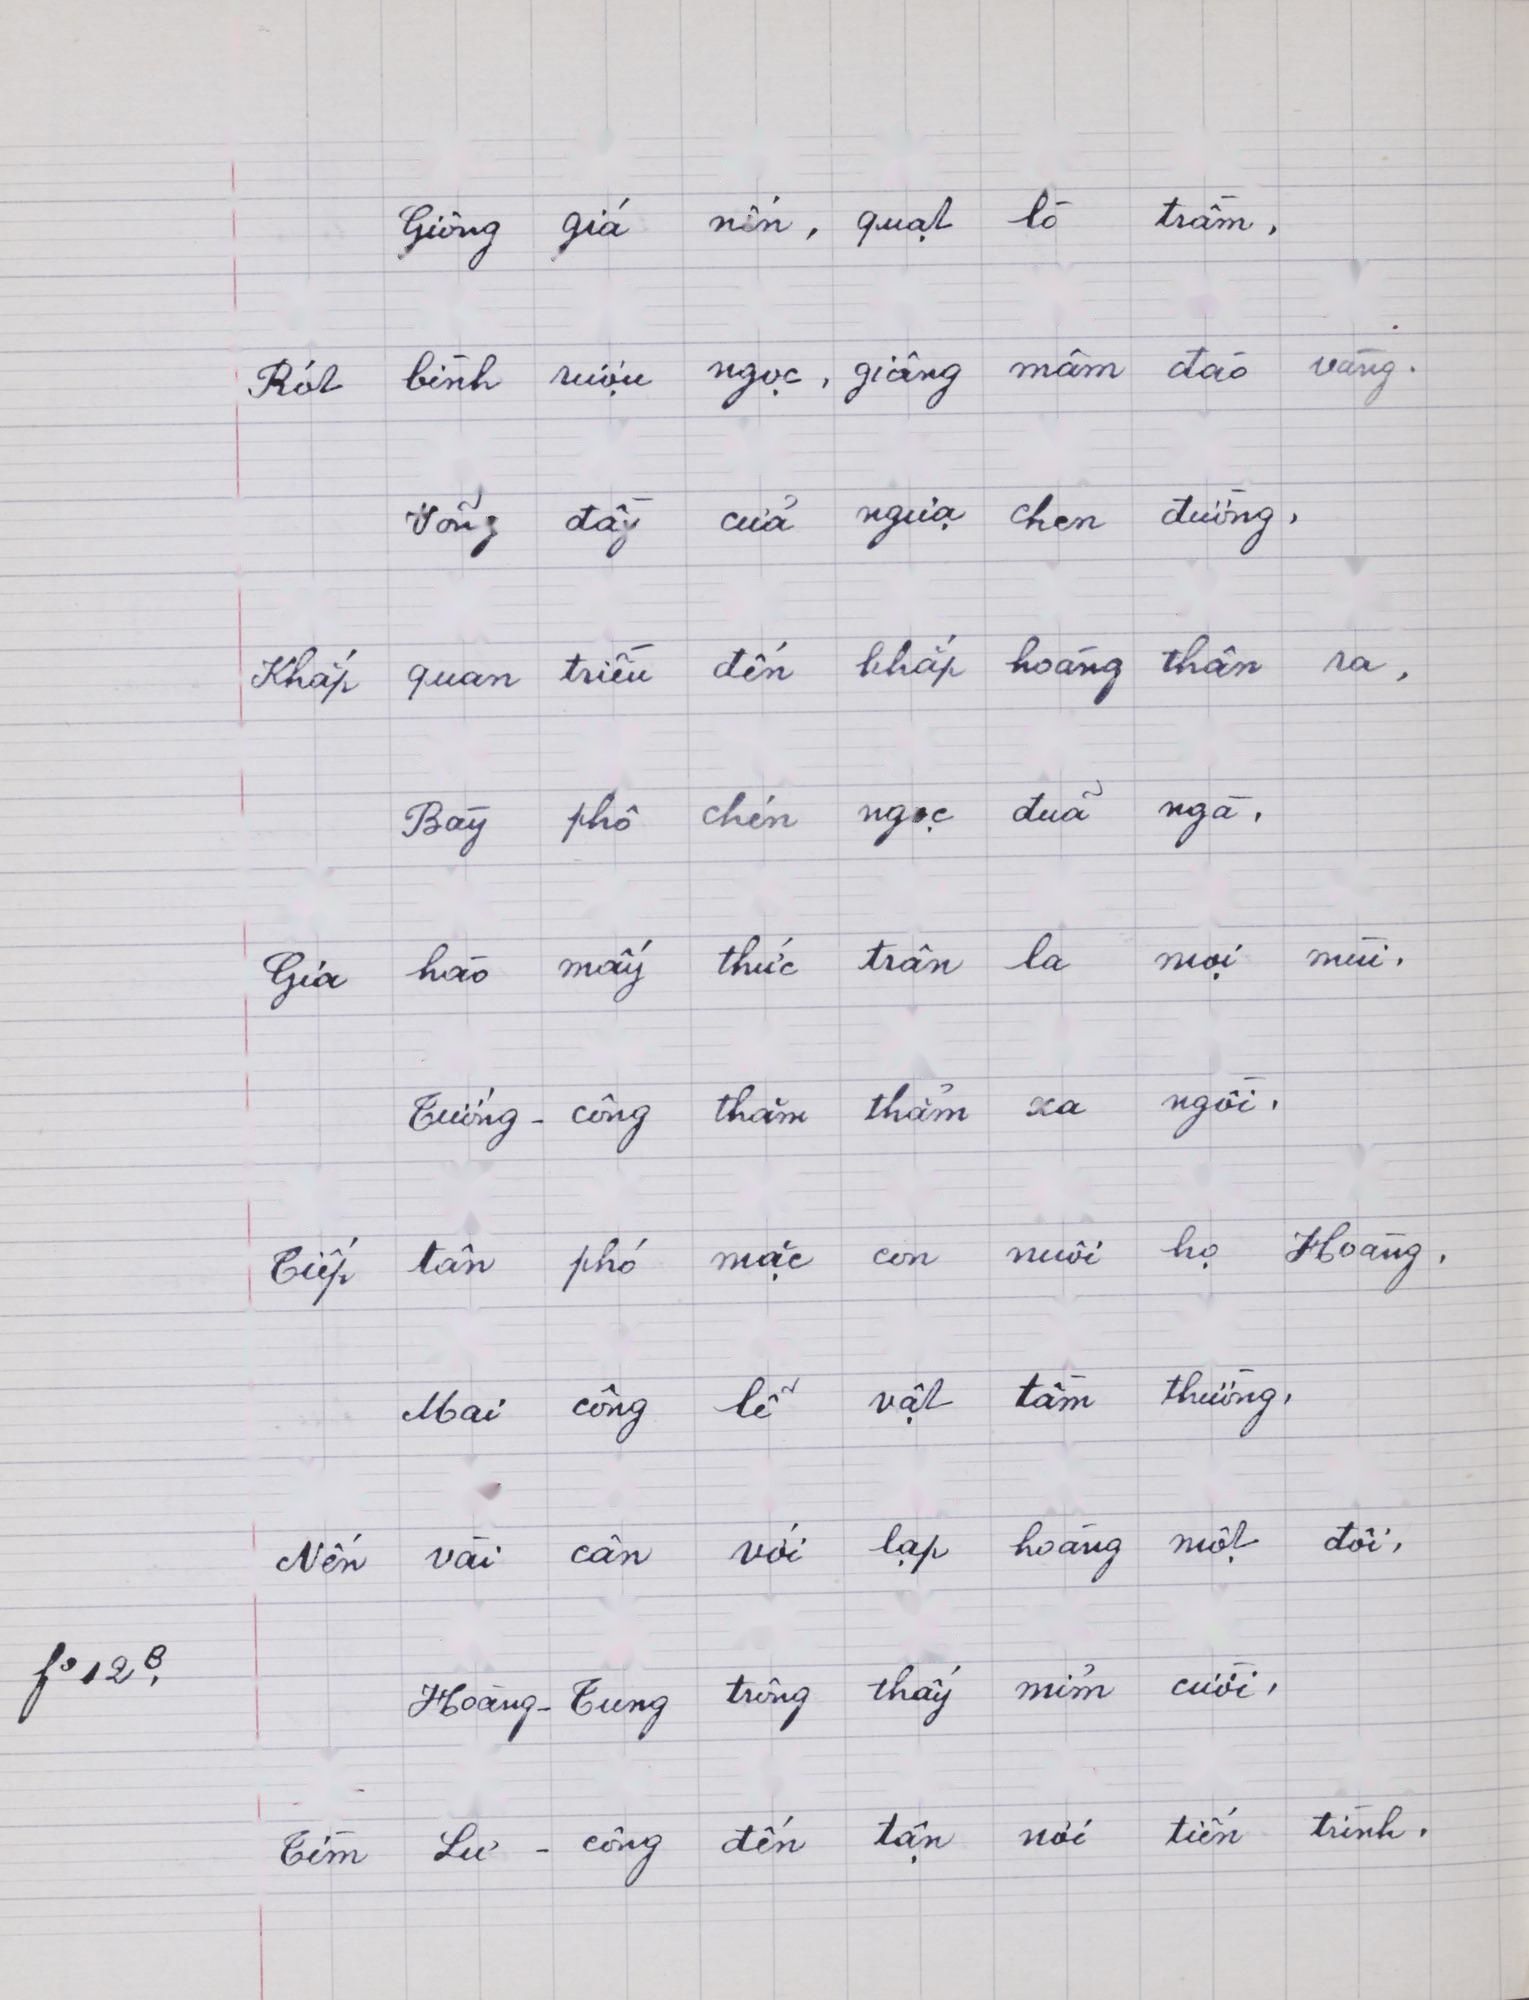 Giông giá nến, quạt lò trầm,
Rót bình rượu ngọc, giâng mâm đào vàng.
Võng đầy cửa ngựa chen đường,
Khắp quan triều đến khắp hoàng thân ra,
Bày phô chén ngọc đũa ngà,
Gia hào mấy thức trân la mọi mùi.
Tướng-công thăm thẳm xa ngồi,
Tiếp tân phó mặc con nuôi họ Hoàng,
Mai công lễ vật tầm thường,
Nến vài cân với lạp hoàng một đôi,
f° 12 B, Hoàng-Tung trông thấy mỉm cười,
Tìm Lư-công đến tận nơi tiến trình.